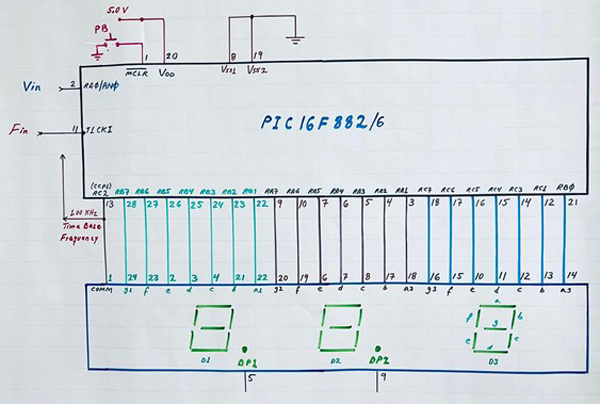 5.0V
PB
1 20 8 19
MCLR VDD VSS1 VSS2
Vin 2 RAØ/ANØ
PIC16F882/6
Fin 11 T1CKI
(CCP1)
RC2 RB7 RB6 RB5 RB4 RB3 RB2 RB1 RA7 RA6 RA5 RA4 RA3 RA2 RA1 RC7 RC6 RC5 RC4 RC3 RC1 RBØ
13 28 27 26 25 24 23 22 9 10 7 6 5 4 3 18 17 16 15 14 12 21
1.00 KHz
Time Base
Frequency
1 29 23 2 3 4 21 22 20 19 6 7 8 17 18 16 15 10 11 12 13 14
COMM g1 f e d c b a1 g2 f e d c b a2 g3 f e d c b a3
a
f b
g
e c
d
D1 DP1 D2 DP2 D3
5 9